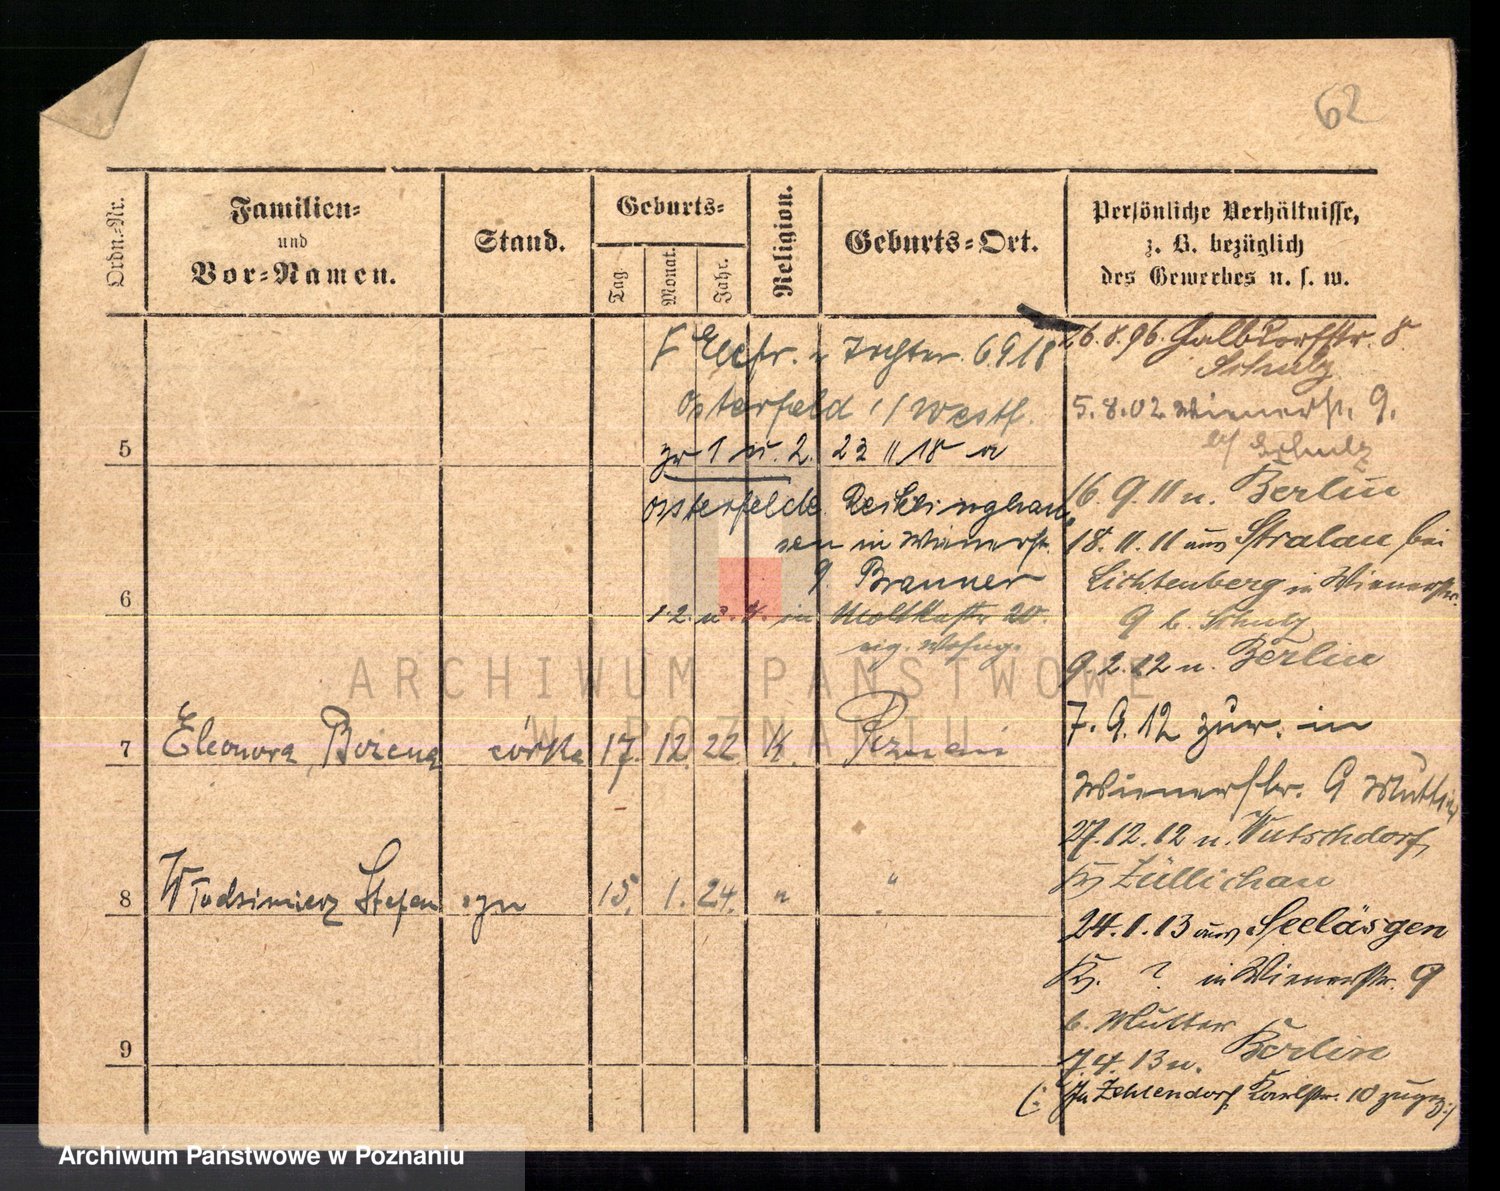 62
Ordn.-Nr.
Familien-
und
Vor-Namen.
Stand.
Geburts-
Tag.
Monat.
Jahr.
Religion.
Geburts-Ort.
Persönliche Verhältnisse,
z. B. bezüglich
des Gewerbes u. s. w.
Tochter. 6.9.18
Osterfeld i/Westf.
5
zu 1 u. 2. 23 11 18 a
Osterfelde. Recklinghau-
sen in Wienerstr.
9. Branner
6
1. 2. u. 4. in Moltkestr 20.
eig. Wohng.
7 Eleonora, Bożena córka 17. 12. 22 K. Poznań
8 Włodzimierz Stefan syn 15. 1. 24. " "
9
26.8.96. Halbdorfstr. 8.
Schulz
5.8.02 Wienerstr. 9.
b/ Schulz
16.9.11 n. Berlin
18.11.11 aus Stralau bei
Lichtenberg in Wienerstr.
9 b. Schulz
9.2.12 n. Berlin
7.9.12 zur. in
Wienerstr. 9 Mutter
27.12.12 n. Mutschdorf,
Kr. Züllichau
24.1.13 aus Seeläsgen
Kr. ? in Wienerstr. 9
b. Mutter
7.4.13 n. Berlin
(: In Zehlendorf, Karlstr. 10 zugez :)
ARCHIWUM PAŃSTWOWE
W POZNANIU
Archiwum Państwowe w Poznaniu